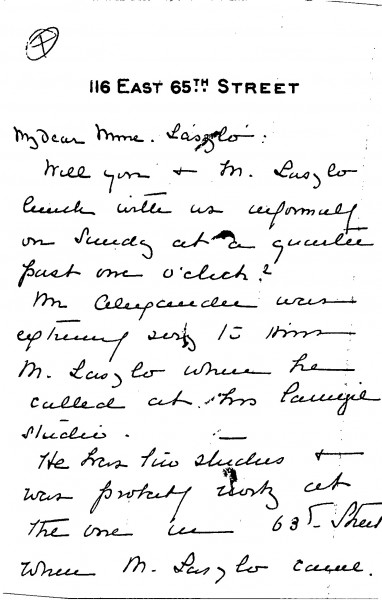 116 EAST 65TH STREET
My dear Mme. László:
Will you & M. Laszlo
lunch with us informally
on Sunday at a quarter
past one o'clock?
Mr Alexander was
extremely sorry to miss
M. Laszlo when he
called at his Carnegie
studio. —
He has two studios &
was probably working at
the one in 63rd Street
when M. Laszlo came.